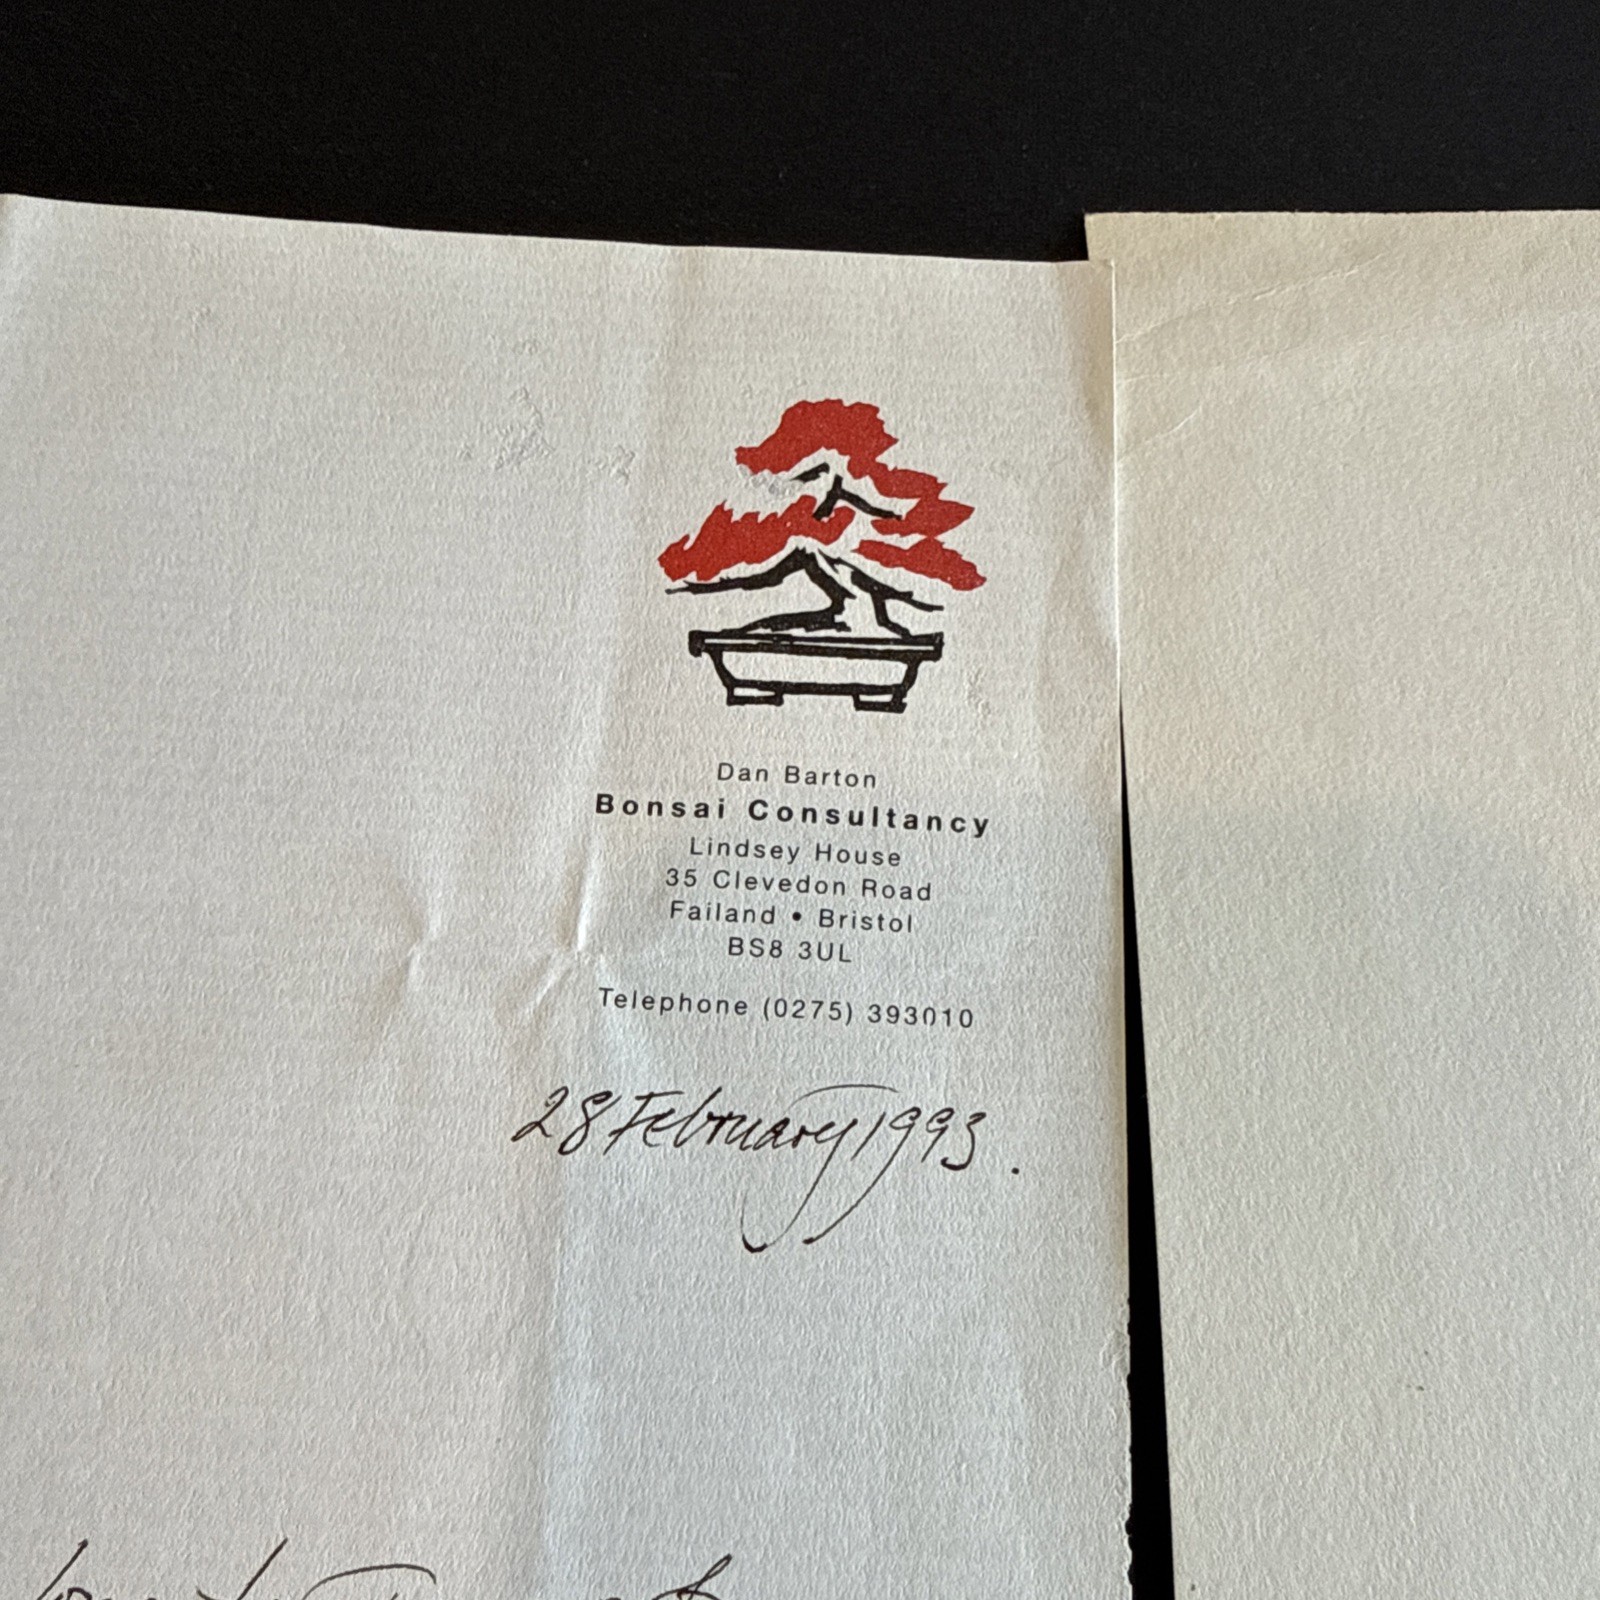 Dan Barton
Bonsai Consultancy
Lindsey House
35 Clevedon Road
Failand • Bristol
BS8 3UL
Telephone (0275) 393010
28 February 1993.